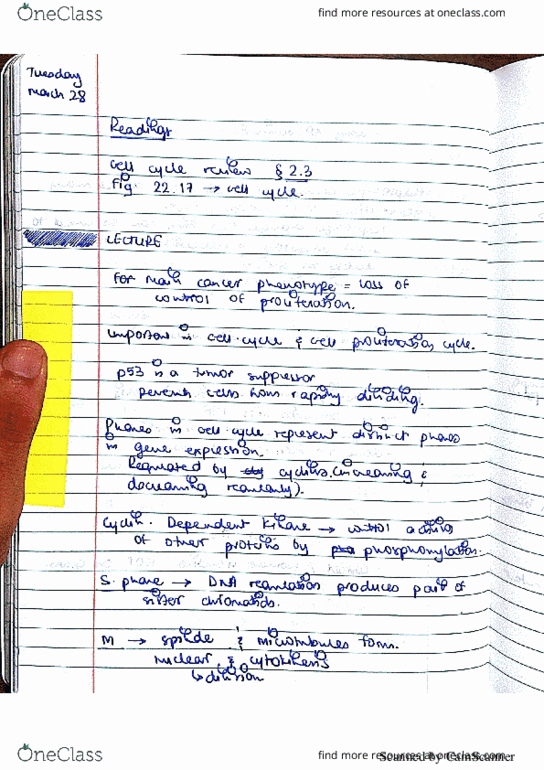 OneClass
find more resources at oneclass.com
Tuesday
March 28
Readings
Cell cycle review § 2.3
Fig. 22.17 → cell cycle.
LECTURE
For main cancer phenotype = loss of
control of proliferation.
Important in cell cycle & cell proliferation cycle.
p53 is a tumor suppressor
prevents cells from rapidly dividing.
Phases in cell cycle represent distinct phases
in gene expression.
Regulated by cyclins (increasing &
decreasing regularly).
Cyclin. Dependent Kinase → control activity
of other proteins by phosphorylation.
S. phase → DNA replication produces pair of
sister chromatids.
M → spindle & microtubules form.
nuclear & cytokinesis
↳ division
OneClass
find more resources at oneclass.com
Scanned by CamScanner